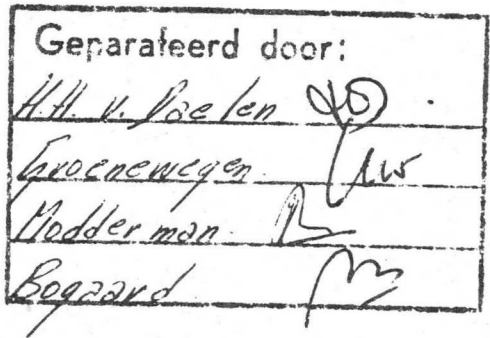 Geparafeerd door:
H.H. v. Daelen
Groenewegen
Modderman
Bogaard